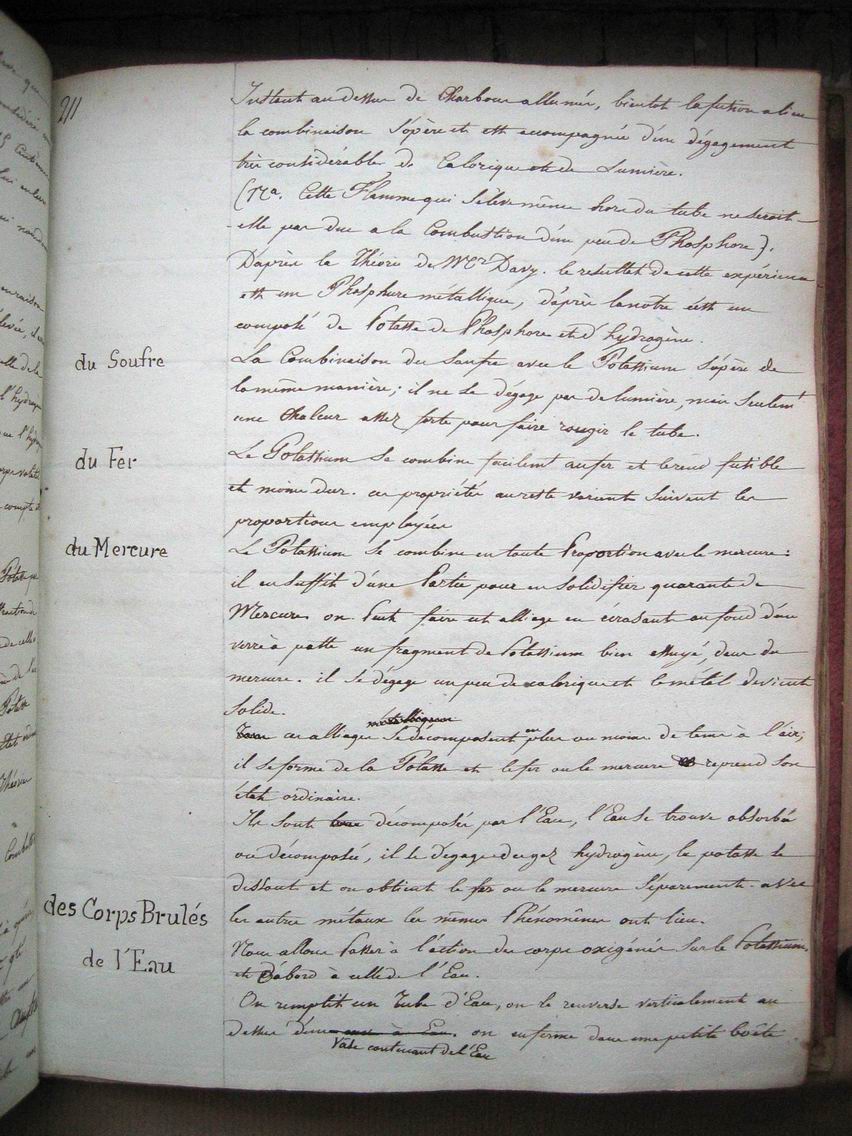 211
Instant au dessus de Charbons allumés, bientot la fusion a lieu
la combinaison s'opère et est accompagnée d'un dégagement
très considérable de Calorique et de Lumière.
(Na. Cette Flamme qui s'élève même hors du tube ne seroit-
-elle pas due a la Combustion d'un peu de Phosphore).
D'après la Théorie de Mr Davy. le resultat de cette expérience
est un Phosphure métallique, d'après la notre c'est un
composé de Potasse de Phosphore et d'hydrogène.
du Soufre
La Combinaison du Soufre avec le Potassium s'opère de
la même manière; il ne se dégage pas de lumière, mais seulemt
une chaleur assez forte pour faire rougir le tube.
du Fer
Le Potassium se combine facilemt au fer et le rend fusible
et moins dur. ces propriétés au reste varient suivant les
proportions employées
du Mercure
Le Potassium se combine en toute Proportion avec le mercure:
il en suffit d'une Partie pour en solidifier quarante de
Mercure on Peut faire cet alliage en écrasant au fond d'un
verre à patte un fragment de Potassium bien essuyé, dans du
mercure. il se dégage un peu de calorique et le métal devient
solide.
métalliques
ces alliages se décomposent en plus ou moins de tems à l'air;
il se forme de la Potasse et le fer ou le mercure reprend son
état ordinaire.
Ils sont décomposés par l'Eau, l'Eau se trouve absorbée
ou décomposée, il se dégage du gaz hydrogène, la potasse se
dissout et on obtient le fer ou le mercure séparement. avec
les autres métaux les mêmes Phénomênes ont lieu.
des Corps Brulés
Nous allons Passer à l'action des corps oxigénés sur le Potassium,
de l'Eau
et Dabord à celle de l'Eau.
On remplit un Tube d'Eau, on le renverse verticalement au
dessus d'un on enferme dans une petite boëte
Vase contenant de l'Eau